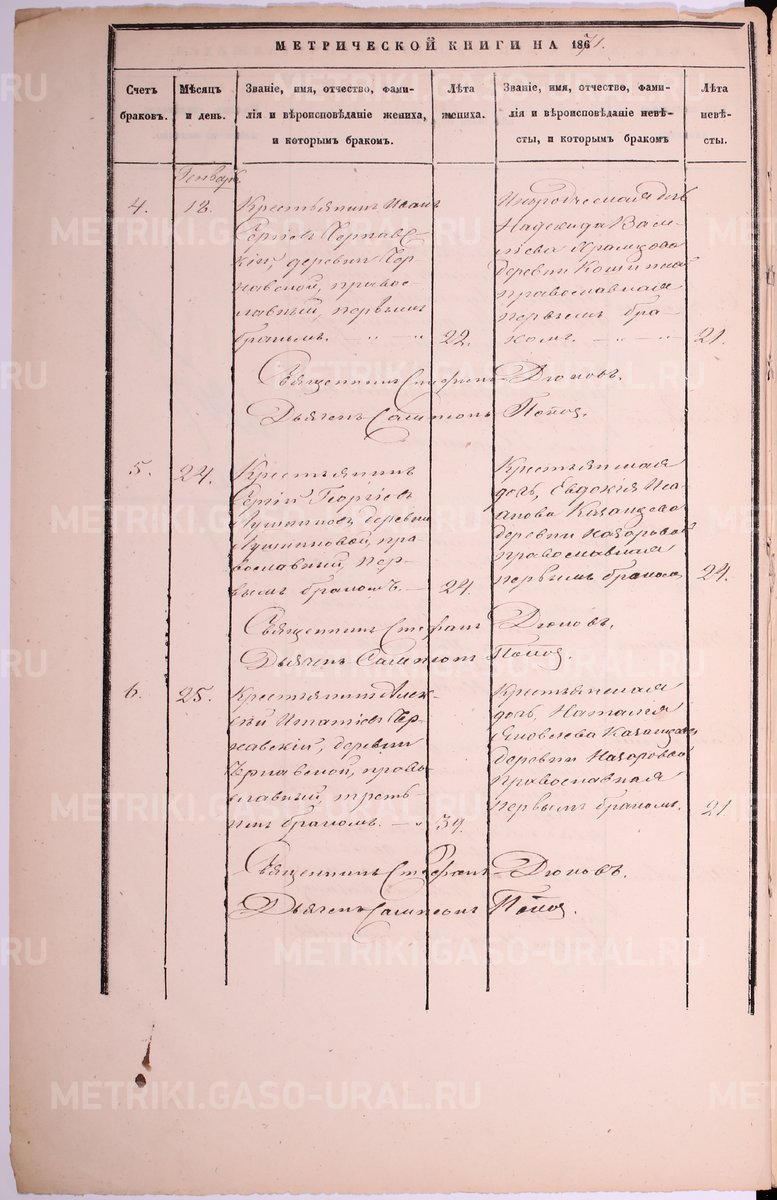 МЕТРИЧЕСКОЙ КНИГИ НА 1871.
Счетъ браковъ.
Мѣсяцъ и день.
Званіе, имя, отчество, фами-
лія и вѣроисповѣданіе жениха,
и которымъ бракомъ.
Лѣта жениха.
Званіе, имя, отчество, фами-
лія и вѣроисповѣданіе невѣ-
сты, и которымъ бракомъ
Лѣта невѣ-
сты.
Генварь
4.
18.
Крестьянинъ Иванъ
Чернавс-
кій, деревни Чер
навской, правос
лавный, первымъ
бракомъ.
22.
дчь
Надежда Васи
льева
деревни
православная
первымъ бра-
комъ.
21.
Священникъ Стефанъ Дюковъ.
Дьячекъ Сампсонъ Поповъ.
5.
24.
Крестьянинъ
Сергій Георгіевъ
деревни
пра-
вославный, пер-
вымъ бракомъ.
24.
Крестьянская
дочь, Евдокія Ив
анова Казанцева
деревни Назаровой
православная
первымъ бракомъ
24.
Священникъ Стефанъ Дюковъ.
Дьячекъ Сампсонъ Поповъ.
6.
25.
Крестьянинъ Алек
сѣй Игнатіевъ Чер-
навскій, деревни
Чернавской, право
славный, треть-
имъ бракомъ.
39.
Крестьянская
дочь, Наталія
Яковлева Казанцева
деревни Назаровой
православная
первымъ бракомъ.
21.
Священникъ Стефанъ Дюковъ.
Дьячекъ Сампсонъ Поповъ.
METRIKI.GASO-URAL.RU